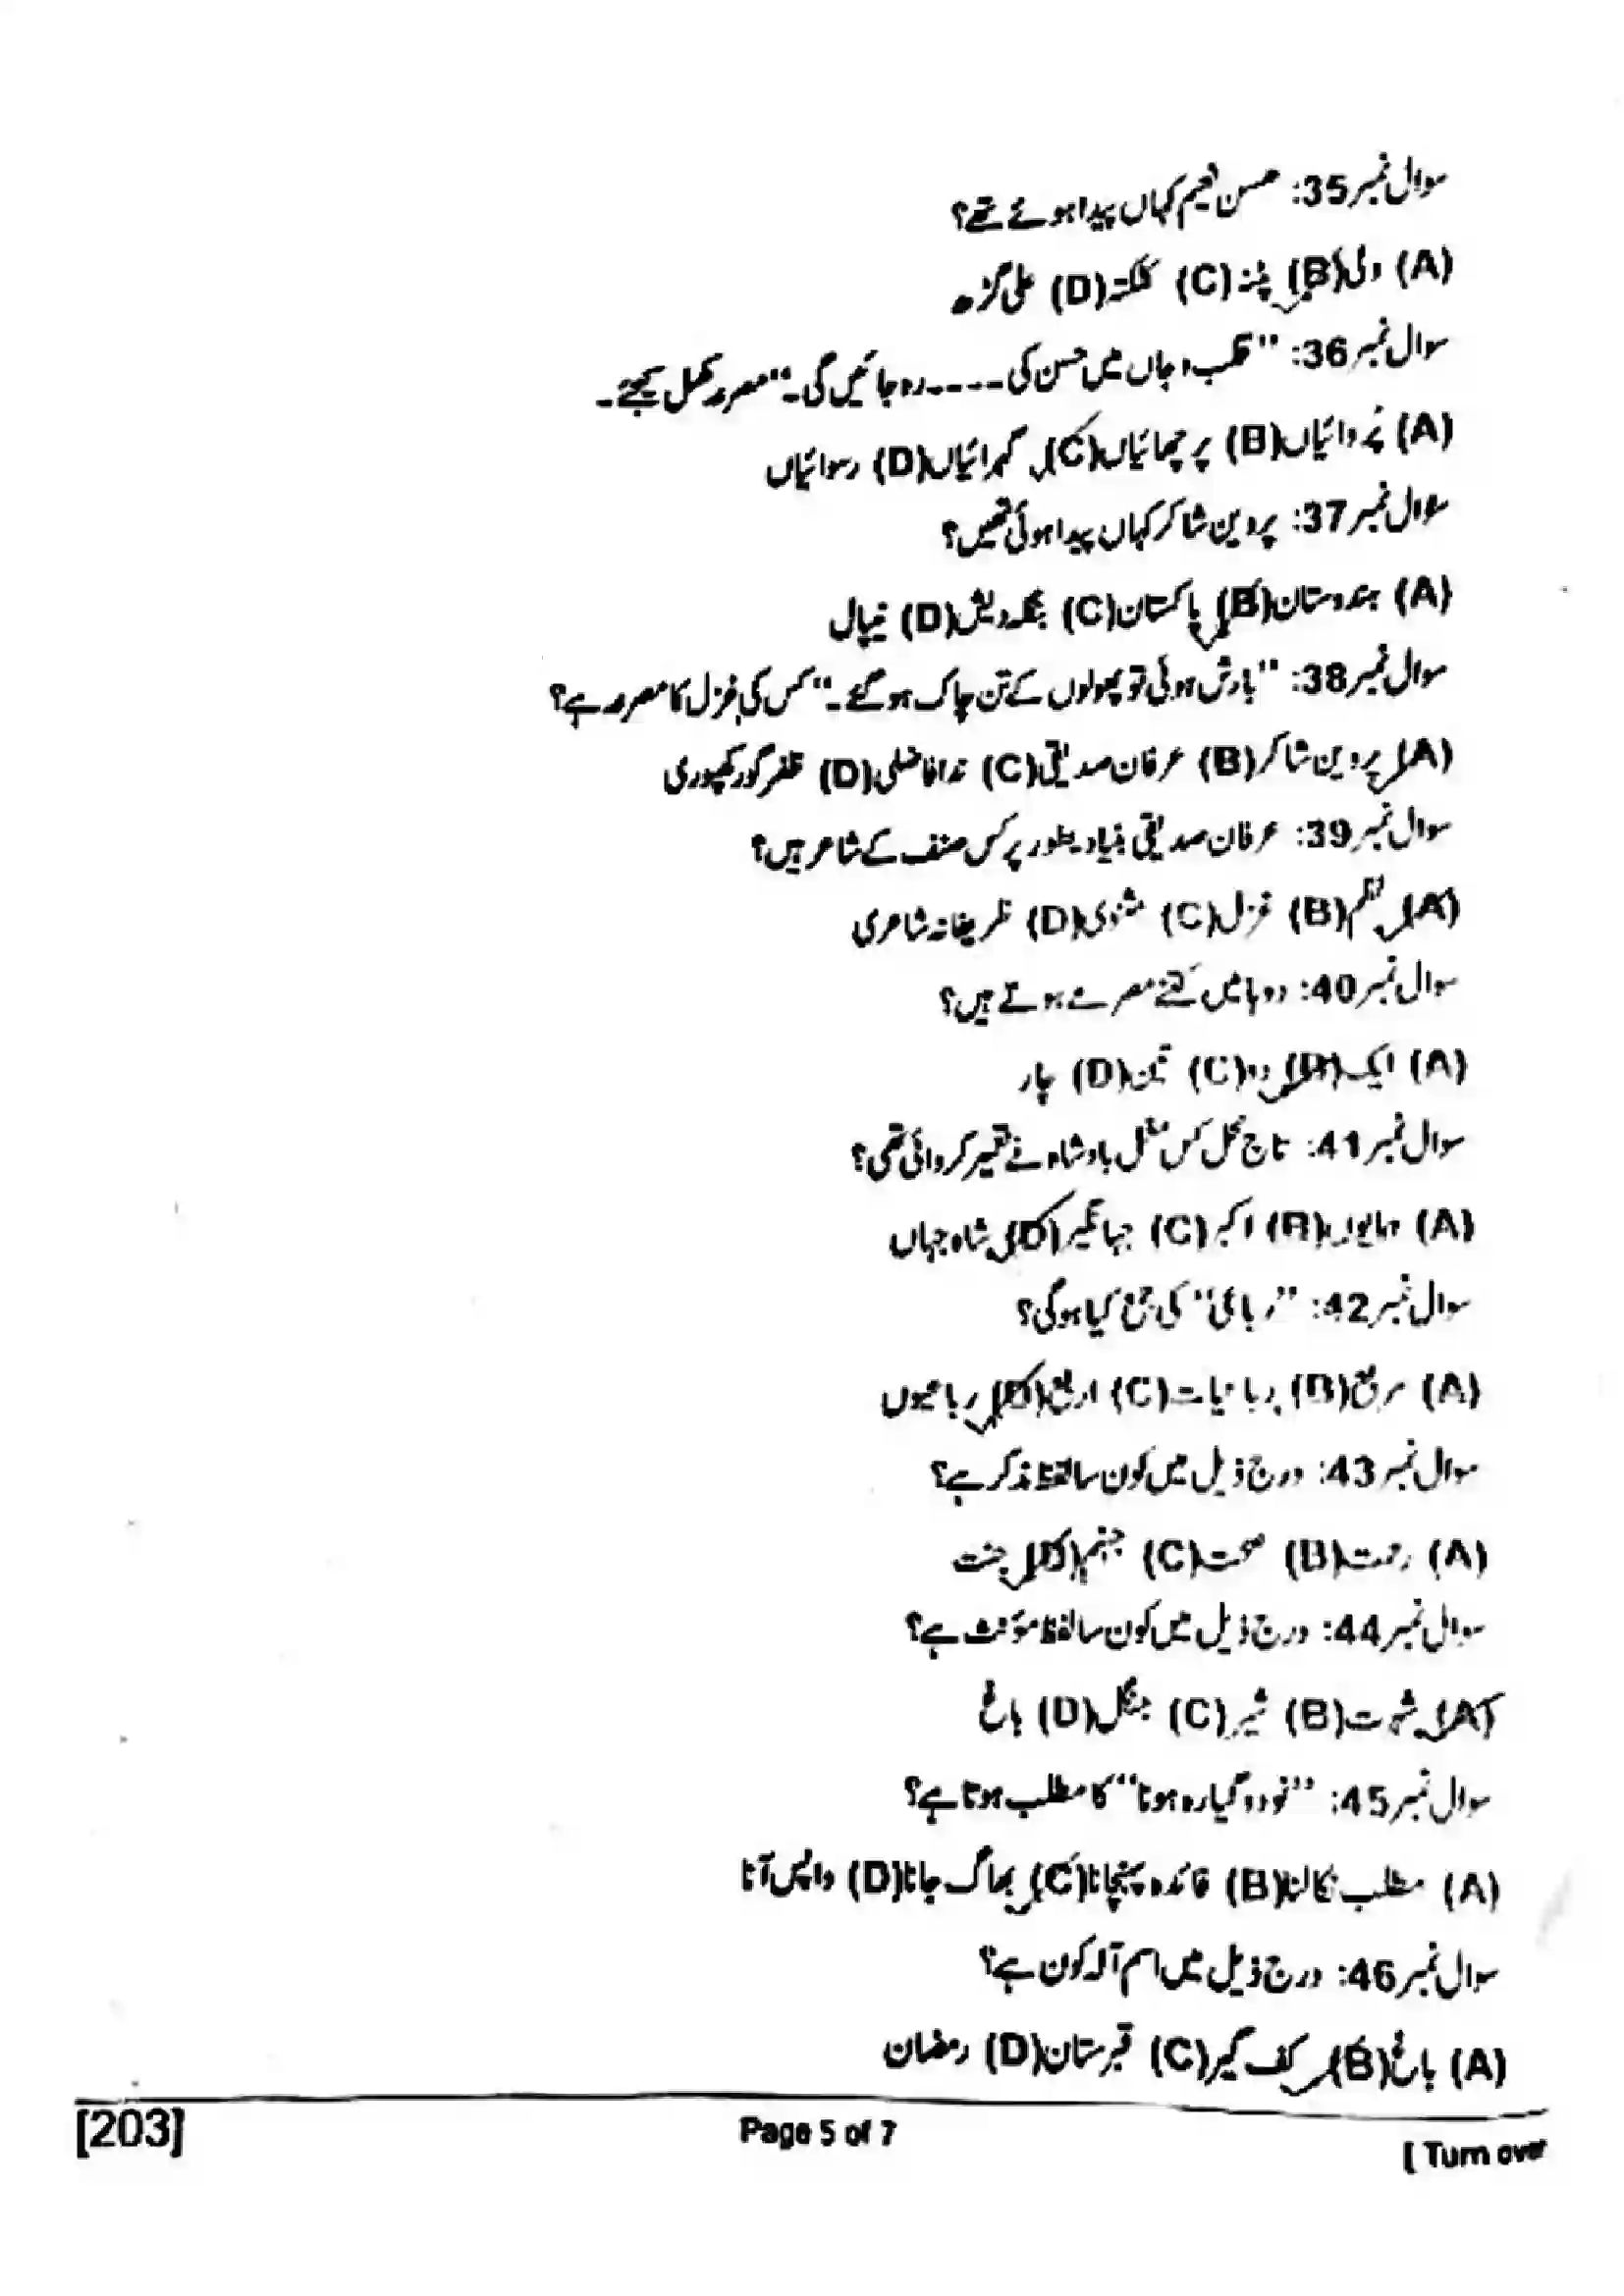 سوال نمبر35: حسن نعیم کہاں پیدا ہوئے تھے؟
(A) دلی (B) پٹنہ (C) کلکتہ (D) علی گڑھ
سوال نمبر36: "قلب و جاں میں حسن کی ----- رہ جائیں گی۔" مصرعہ مکمل کیجئے۔
(A) پُروائیاں (B) پرچھائیاں (C) گہرائیاں (D) رسوائیاں
سوال نمبر37: پروین شاکر کہاں پیدا ہوئی تھیں؟
(A) ہندوستان (B) پاکستان (C) بنگلہ دیش (D) نیپال
سوال نمبر38: "بارش ہوئی تو پھولوں کے تن چاک ہو گئے۔" کس کی غزل کا مصرعہ ہے؟
(A) پروین شاکر (B) عرفان صدیقی (C) ندا فاضلی (D) ظفر گورکھپوری
سوال نمبر39: عرفان صدیقی بنیاد یطور پر کس صنف کے شاعر ہیں؟
(A) نظم (B) غزل (C) مثنوی (D) ظریفانہ شاعری
سوال نمبر40: دوہا میں کتنے مصرعے ہوتے ہیں؟
(A) ایک (B) دو (C) تین (D) چار
سوال نمبر41: تاج محل کس مغل بادشاہ نے تعمیر کروائی تھی؟
(A) ہمایوں (B) اکبر (C) جہانگیر (D) شاہ جہاں
سوال نمبر42: "رباعی" کی جمع کیا ہوگی؟
(A) مربع (B) رباعیات (C) اربع (D) رباعیوں
سوال نمبر43: درج ذیل میں کون سا لفظ مذکر ہے؟
(A) رحمت (B) صحت (C) جہنم (D) جنت
سوال نمبر44: درج ذیل میں کون سا لفظ مؤنث ہے؟
(A) شہرت (B) شیر (C) جنگل (D) باغ
سوال نمبر45: "نو دو گیارہ ہونا" کا مطلب ہوتا ہے؟
(A) مطلب نکالنا (B) فائدہ پہنچانا (C) بھاگ جانا (D) واپس آنا
سوال نمبر46: درج ذیل میں اسم آلہ کون ہے؟
(A) باغ (B) کف گیر (C) قبرستان (D) رمضان
[203] Page 5 of 7 [ Turn over